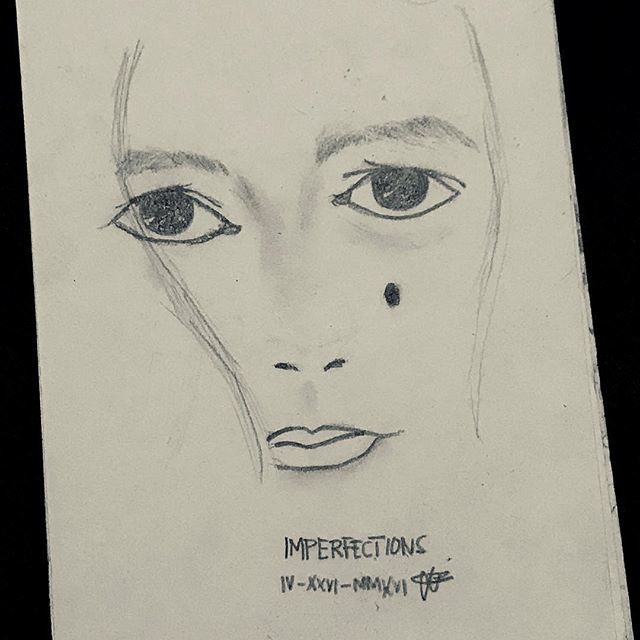 IMPERFECTIONS
IV-XXVI-MMXVI